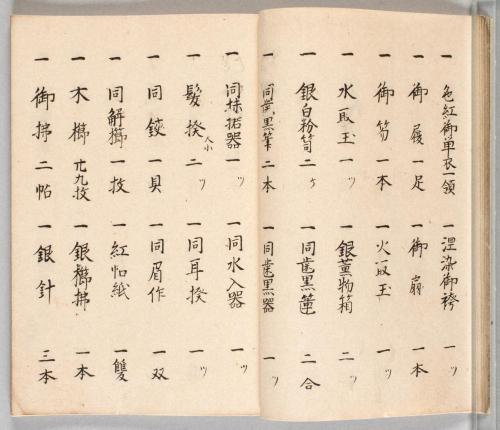 一 色紅御単衣一領 一涅染御袴 一ッ
一 御履 一足 一御扇 一本
一 御笏 一本 一火取玉 一ッ
一 水取玉 一ッ 一銀薫物箱 二ッ
一 銀白粉筥 二ケ 一同歯黒筥 二合
一 同歯黒筆 二本 一同歯黒器 一ッ
一 同 器 一ッ 一同水入器 一ッ
一 髪揆 大小 二ッ 一同耳揆 一ッ
一 同鋏 一具 一同眉作 一双
一 同解櫛 一枚 一紅帖紙 一雙
一 木櫛 廿九枚 一銀櫛拂 一本
一 御拂 二帖 一銀針 三本